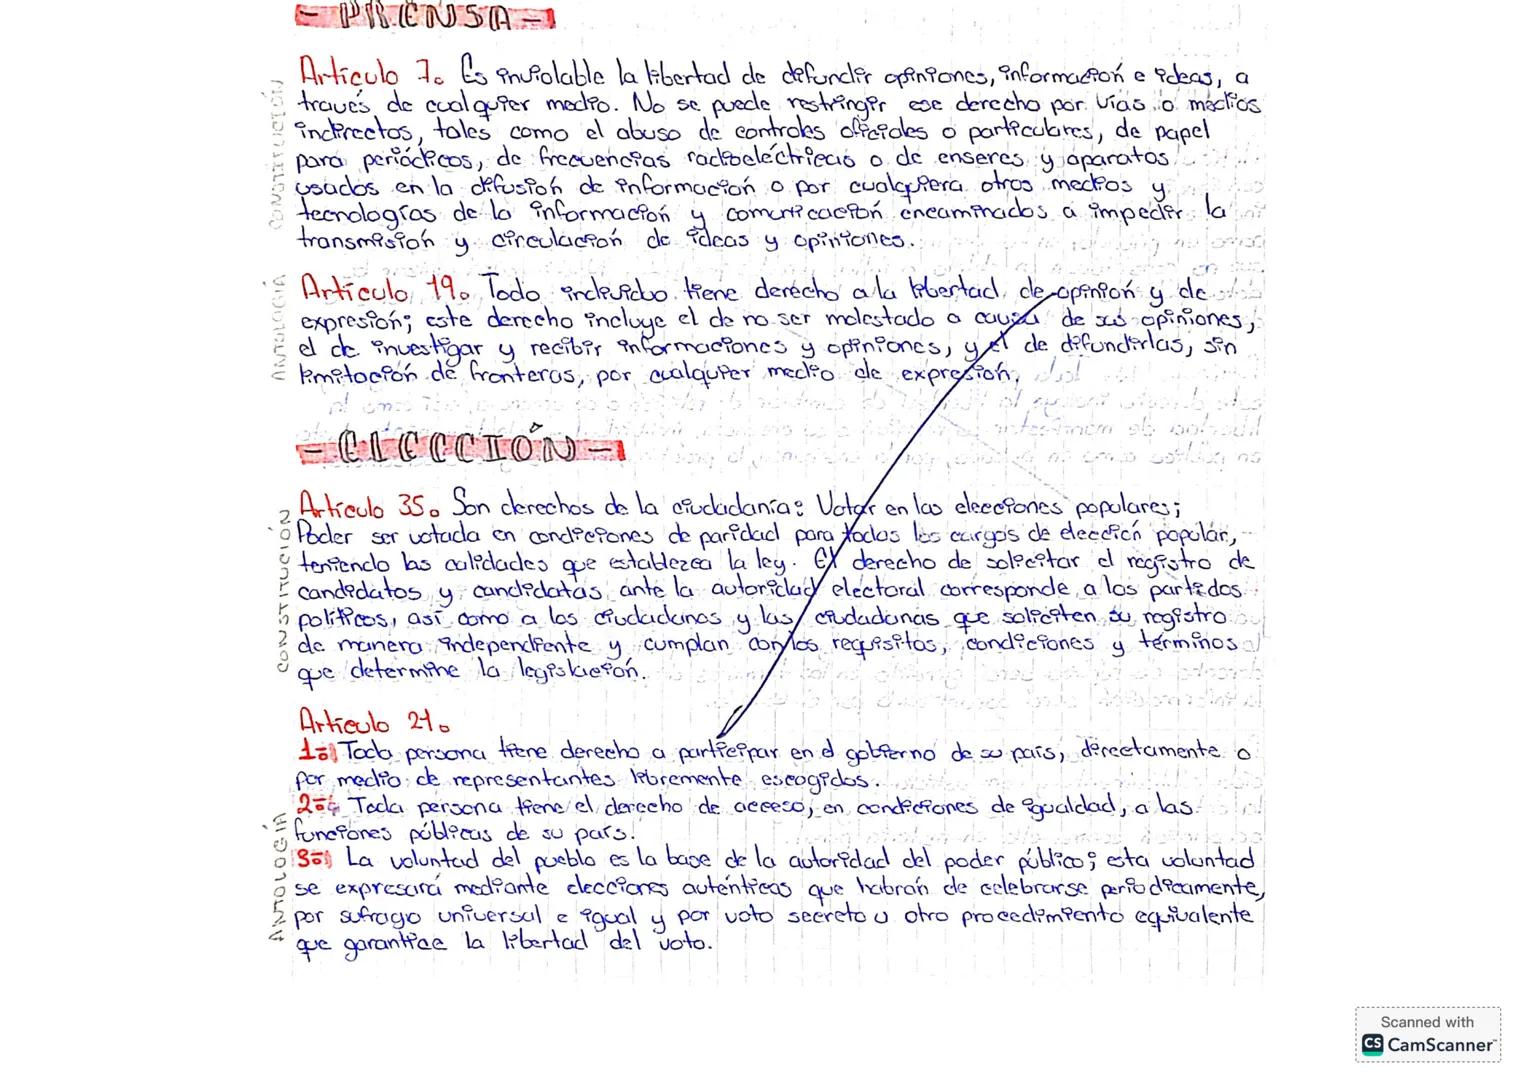 - PRENSA -
CONSTITUCIÓN
Artículo 7. Es inviolable la libertad de difundir opiniones, información e ideas, a
través de cualquier medio. No se puede restringir ese derecho por vías o medios
indirectos, tales como el abuso de controles oficiales o particulares, de papel
para periódicos, de frecuencias radioeléctricas o de enseres y aparatos
usados en la difusión de información o por cualquiera otros medios y
tecnologías de la información y comunicación encaminados a impedir la
transmisión y circulación de ideas y opiniones.
ANTOLOGÍA
Artículo 19. Todo individuo tiene derecho a la libertad de opinión y de
expresión; este derecho incluye el de no ser molestado a causa de sus opiniones,
el de investigar y recibir informaciones y opiniones, y el de difundirlas, sin
limitación de fronteras, por cualquier medio de expresión.
- ELECCIÓN -
CONSTITUCIÓN
Artículo 35. Son derechos de la ciudadanía: Votar en las elecciones populares;
Poder ser votada en condiciones de paridad para todos los cargos de elección popular,
teniendo las calidades que establezca la ley. El derecho de solicitar el registro de
candidatos y candidatas ante la autoridad electoral corresponde a los partidos
políticos, así como a los ciudadanos y las ciudadanas que soliciten su registro
de manera independiente y cumplan con los requisitos, condiciones y términos
que determine la legislación.
ANTOLOGÍA
Artículo 21.
1=) Toda persona tiene derecho a participar en el gobierno de su país, directamente o
por medio de representantes libremente escogidos.
2=) Toda persona tiene el derecho de acceso, en condiciones de igualdad, a las
funciones públicas de su país.
3=) La voluntad del pueblo es la base de la autoridad del poder público; esta voluntad
se expresará mediante elecciones auténticas que habrán de celebrarse periodicamente,
por sufragio universal e igual y por voto secreto u otro procedimiento equivalente
que garantice la libertad del voto.
Scanned with
CS CamScanner